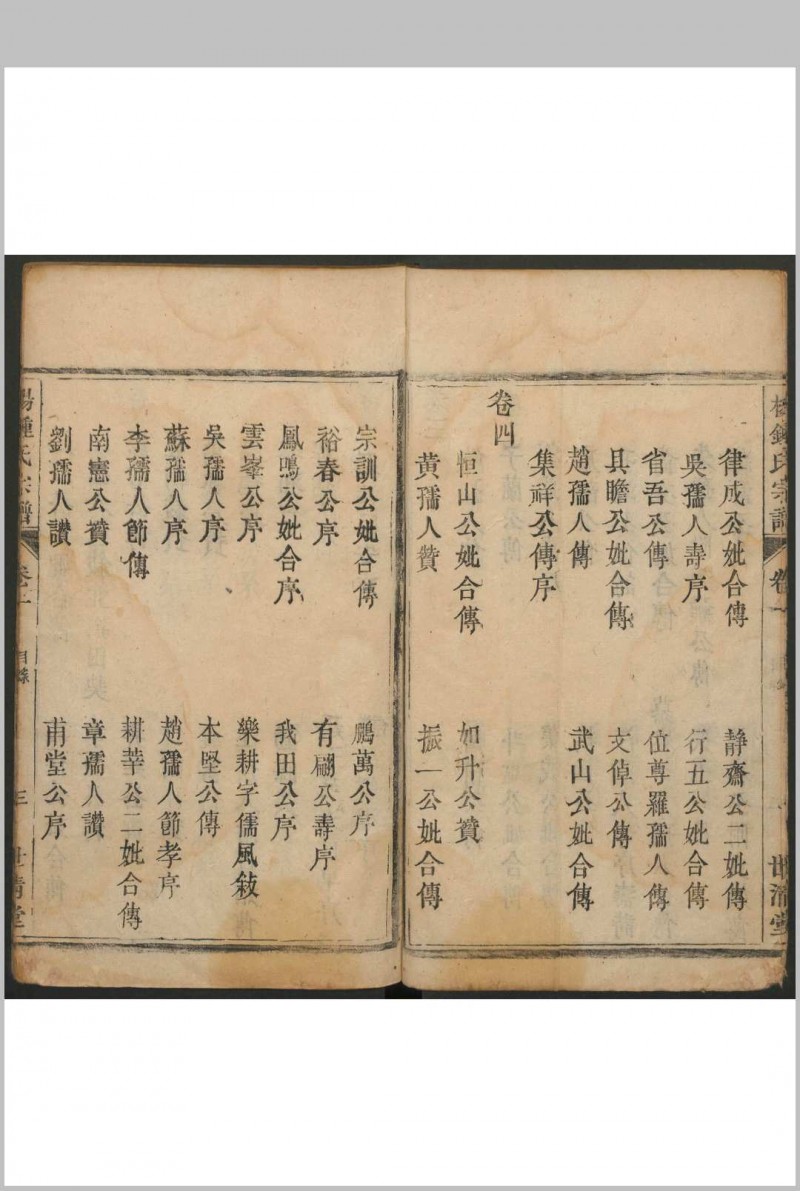 鍾氏宗譜 卷一 世清堂
律成公妣合傳 靜齋公二妣傳
吳孺人壽序 行五公妣合傳
省吾公傳 位尊羅孺人傳
具瞻公妣合傳 文倬公傳
趙孺人傳 武山公妣合傳
集祥公傳序
卷四
恒山公妣合傳 如升公贊
黃孺人贊 振一公妣合傳
宗訓公妣合傳 鵬萬公序
裕春公序 有翩公壽序
鳳鳴公妣合序 我田公序
雲峯公序 樂耕字儒風敍
吳孺人序 本堅公傳
蘇孺人序 趙孺人節孝序
李孺人節傳 耕莘公二妣合傳
南憲公贊 章孺人讚
劉孺人讚 甫堂公序
鍾氏宗譜 卷一 目錄 三 世清堂